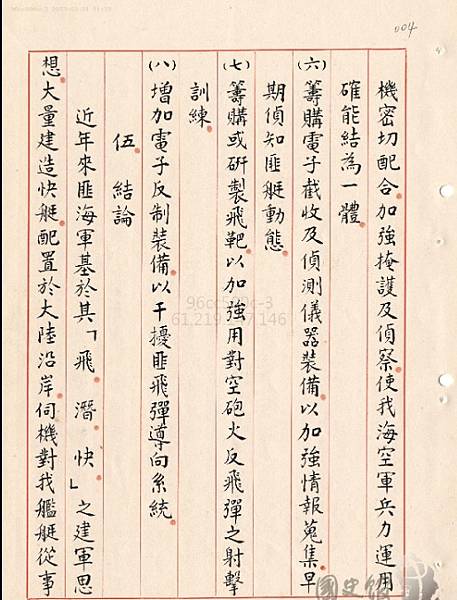 004
機密切配合。加強掩護及偵察。使我海空軍兵力運用
確能結為一體。
(六)籌購電子截收及偵測儀器裝備。以加強情報蒐集。早
期偵知匪艇動態。
(七)籌購或研製飛靶。以加強用對空砲火反飛彈之射擊
訓練。
(八)增加電子反制裝備。以干擾匪飛彈導向系統。
伍 結論
近年來匪海軍基於其「飛、潛、快」之建軍思
想。大量建造快艇。配置於大陸沿岸。伺機對我艦艇從事
96cc509c-3
61.219.147.146
國史館